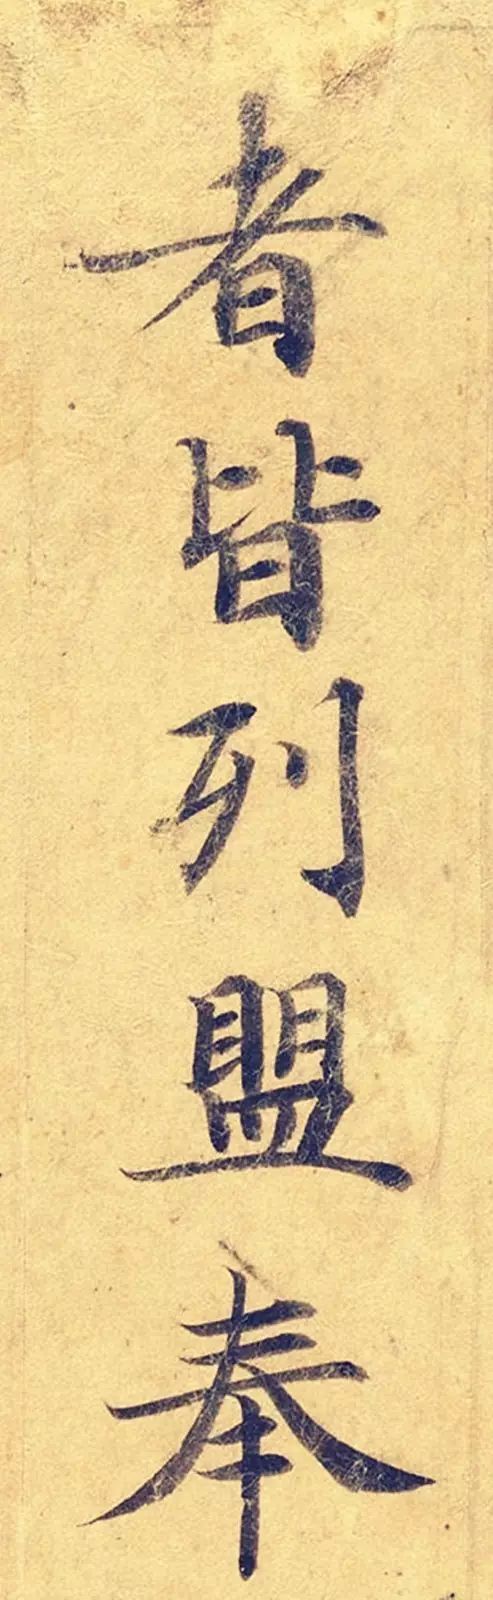 者皆列盟奉